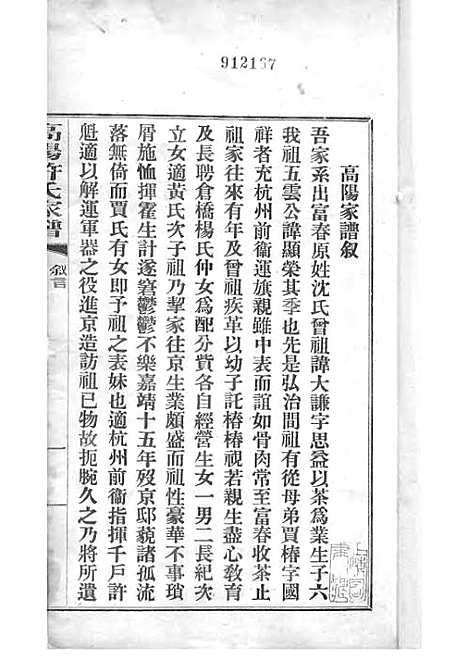 912167
高陽家譜叙
吾家系出富春原姓沈氏曾祖諱大謙字思益以茶爲業生子六
我祖五雲公諱顯榮其季也先是弘治間祖有從母弟賈椿字國
祥者充杭州前衞運旗親雖中表而誼如骨肉常至富春收茶止
祖家往來有年及曾祖疾革以幼子託椿椿視若親生盡心敎育
及長聘倉橋楊氏仲女爲配分貲各自經營生女一男二長紀次
立女適黃氏次子祖乃挈家往京生業頗盛而祖性豪華不事瑣
屑施恤揮霍生計遂窘鬱鬱不樂嘉靖十五年歿京邸藐諸孤流
落無倚而賈氏有女即予祖之表妹也適杭州前衞指揮千戶許
魁適以解運軍器之役進京造訪祖已物故扼腕久之乃將所遺
高陽許氏家譜
叙言